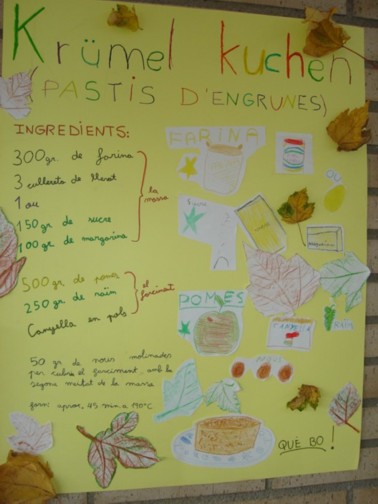 Krümel kuchen
(PASTIS D'ENGRUNES)
INGREDIENTS:
300 gr. de farina
3 cullerets de llevat
1 ou
150 gr de sucre
100 gr de margarina
la massa
500 gr de pomes
250 gr de raïm
Canyella en pols
el farciment
50 gr de nous molinades
per cubrir el farciment, amb la
segona meitat de la massa
forn: aprox. 45 min a 190°C
FARINA
Sucre
POMES
CANYELLA
RAÏM
QUE BO!